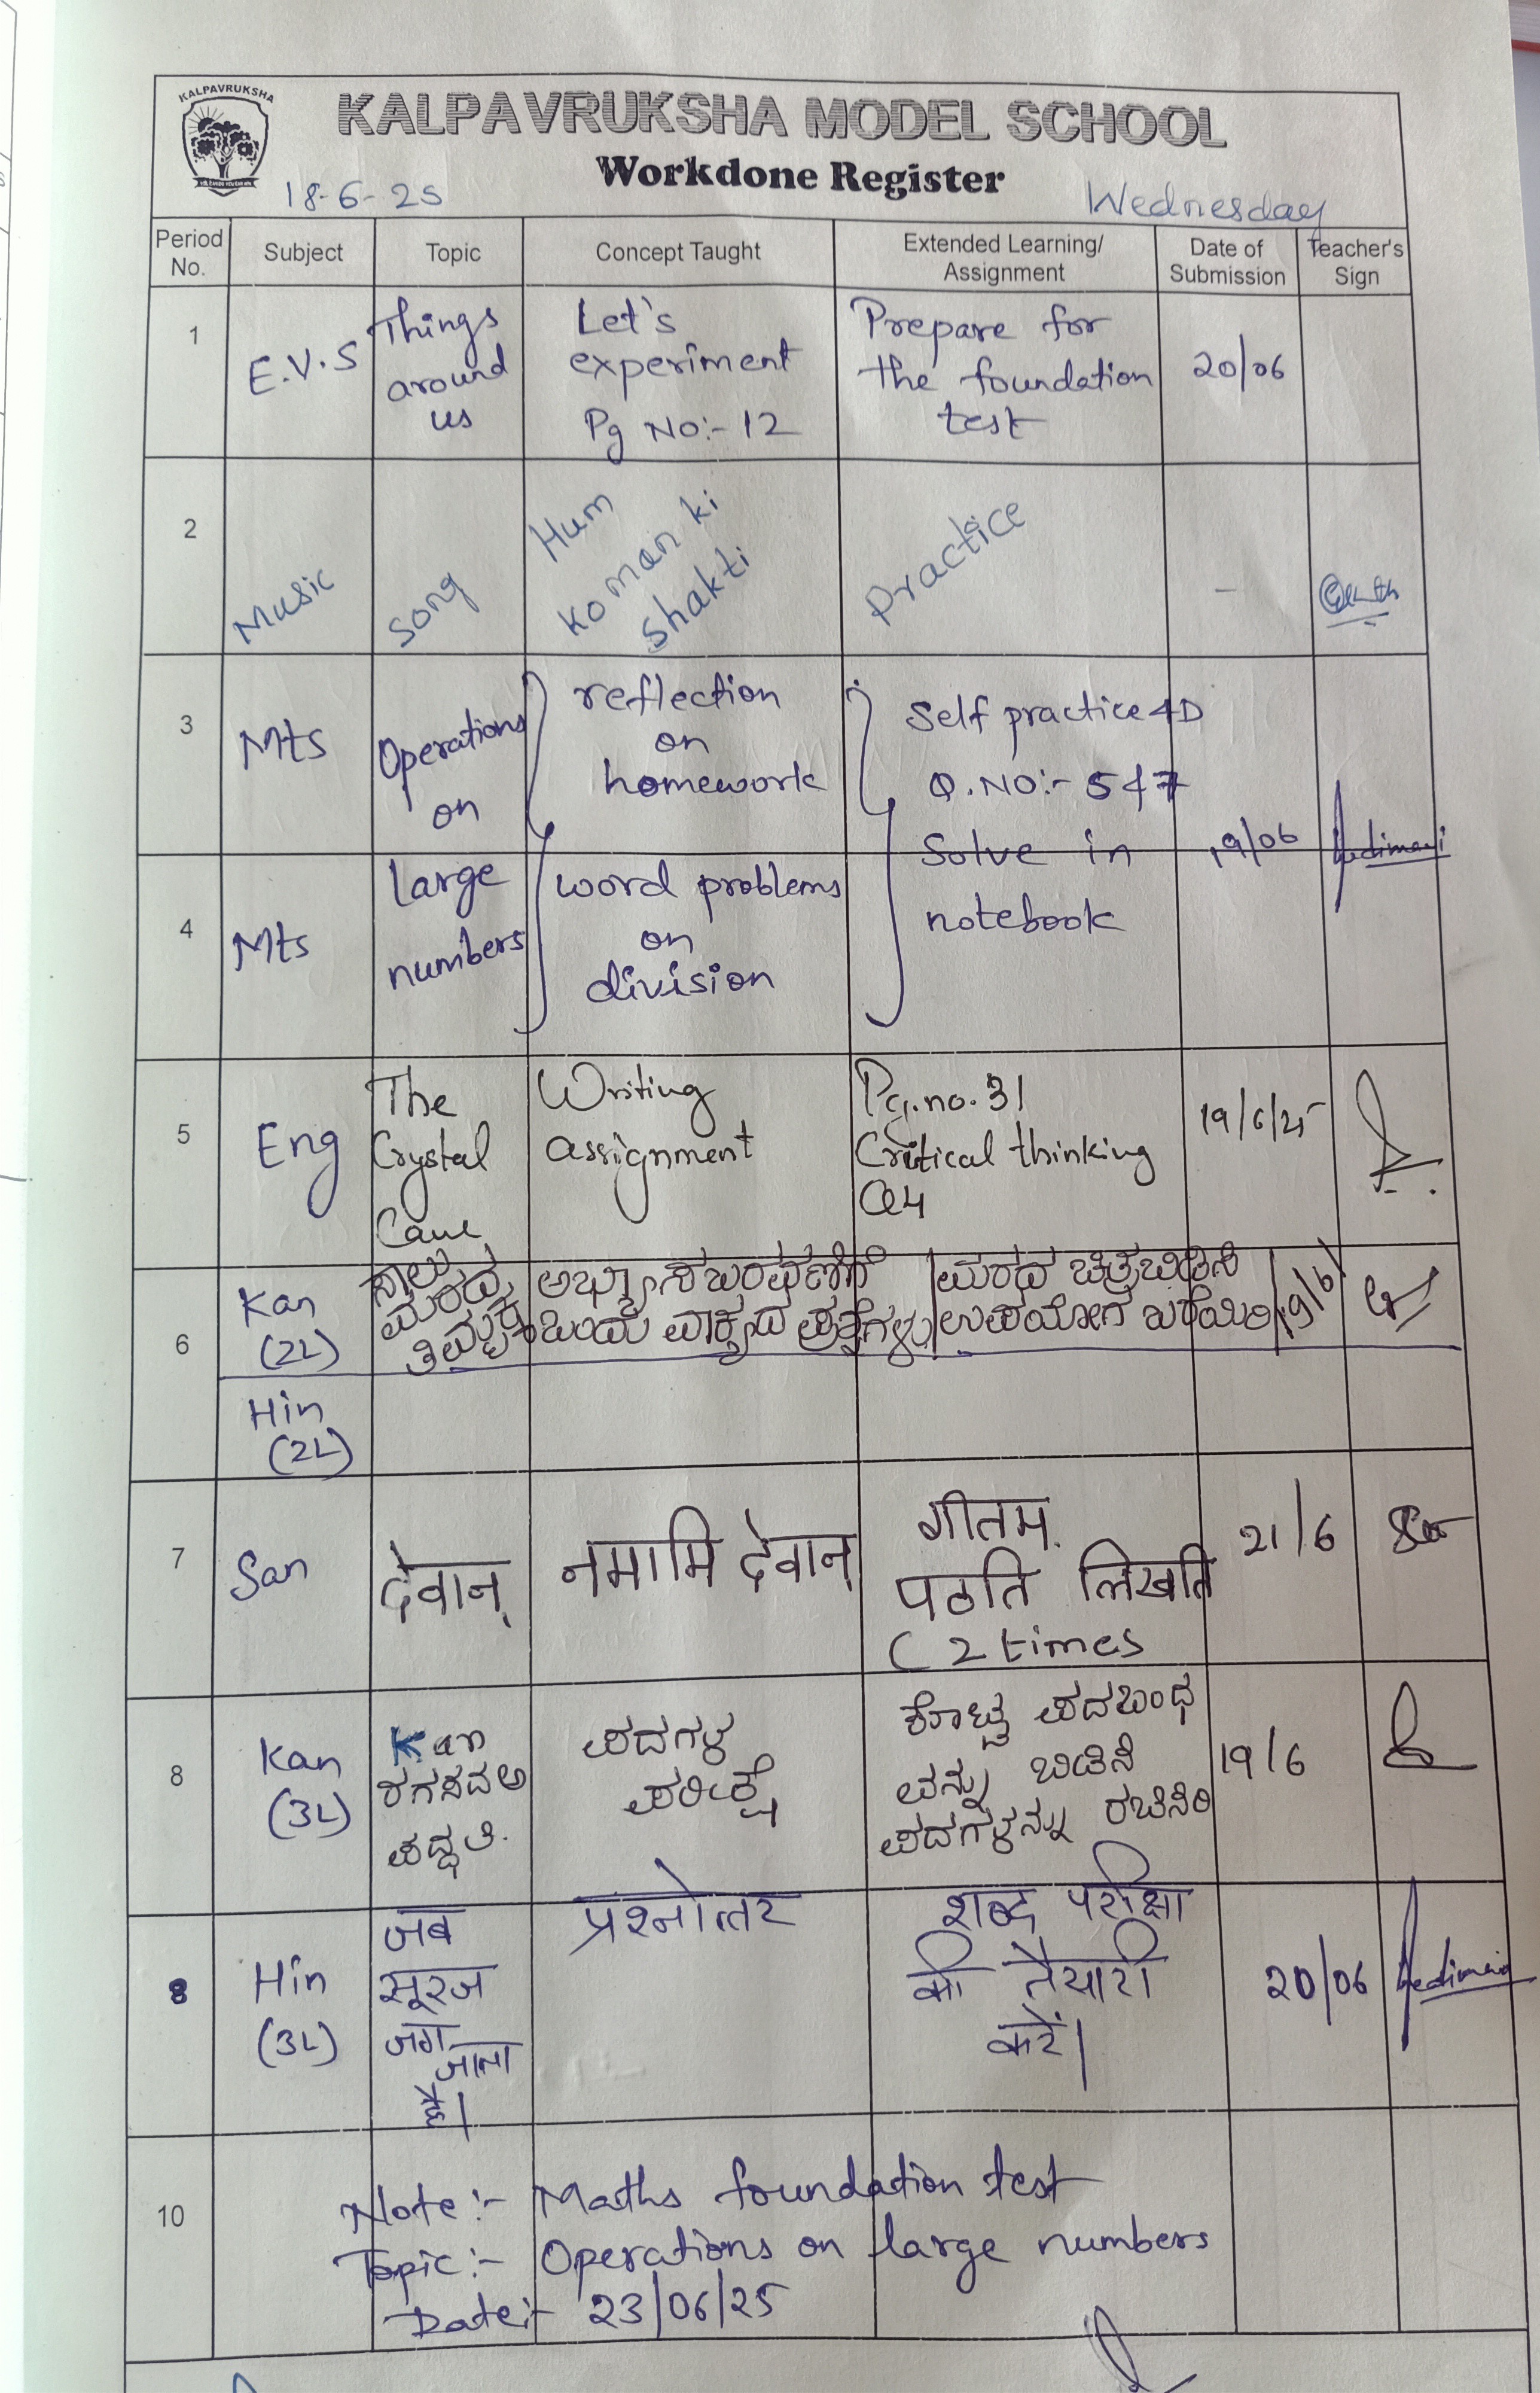 KALPAVRUKSHA
KALPAVRUKSHA MODEL SCHOOL
Workdone Register
18-6-25 Wednesday
Period No. Subject Topic Concept Taught Extended Learning/ Assignment Date of Submission Teacher's Sign
1 E.V.S Things around us Let's experiment Pg No:- 12 Prepare for the foundation test 20/06
2 Music Song Hum ko man ki shakti Practice -
3 Mts Operations on reflection on homework Self practice 4D
Q.NO:- 5 & 7
Solve in 19/06
4 Mts large numbers word problems on division notebook
5 Eng The Crystal Cave Writing assignment Pg.no.31 Critical thinking Q4 19/6/25
6 Kan (2L) ಸಾಲು ಮರದ ತಿಮ್ಮಕ್ಕ ಅಭ್ಯಾಸ ಬರವಣಿಗೆ ಮರದ ಚಿತ್ರ ಬಿಡಿಸಿ
ಒಂದು ವಾಕ್ಯದ ಪ್ರಶ್ನೆಗಳು ಉಪಯೋಗ ಬರೆಯಿರಿ 19/6
Hin (2L)
7 San देवान् नमामि देवान् गीतम् पठति लिखति (2 times 21/6
8 Kan (3L) Kan ರಗಸದಅ ಪದ್ಧತಿ. ಪದಗಳ ಪರೀಕ್ಷೆ ಕೊಟ್ಟ ಪದಬಂಧ
ವನ್ನು ಬಿಡಿಸಿ 19/6
ಪದಗಳನ್ನು ರಚಿಸಿರಿ
8 Hin (3L) जब सूरज जग जाता है। प्रश्नोत्तर शब्द परीक्षा की तैयारी करें। 20/06
10 Note:- Maths foundation test
Topic:- Operations on large numbers
Date:- 23/06/25